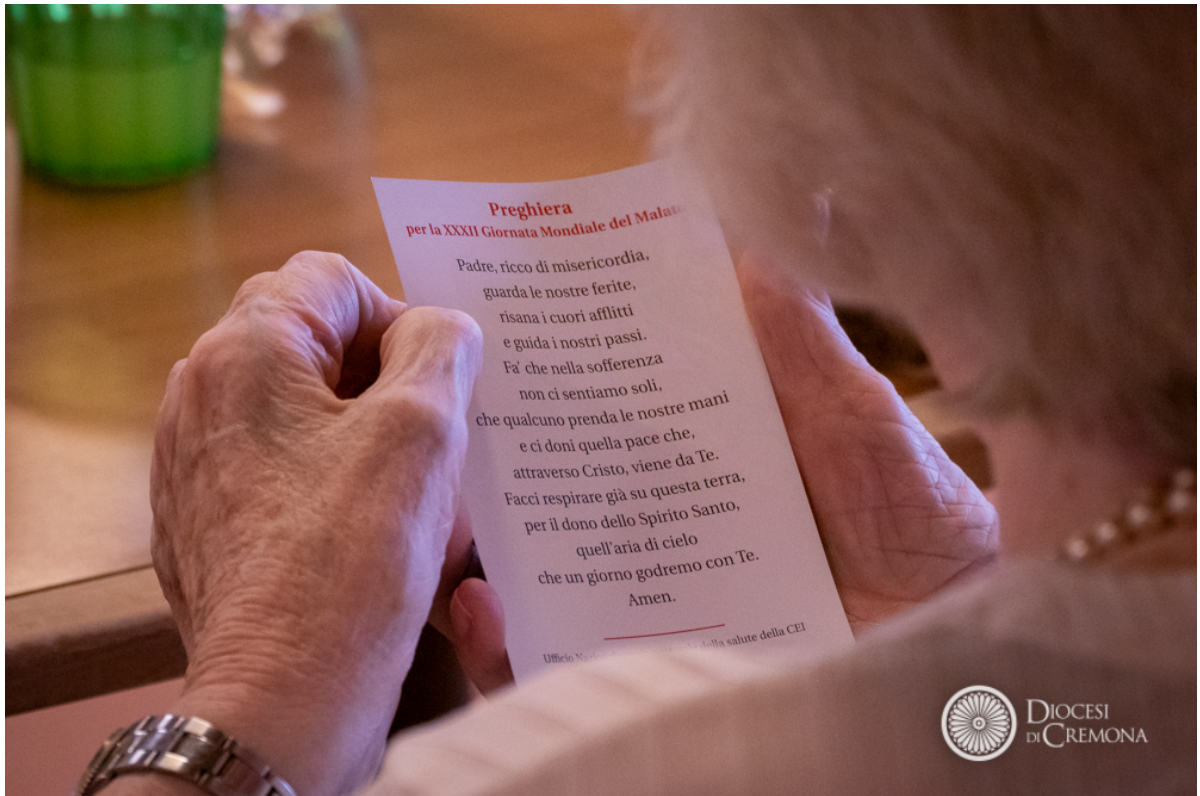 Preghiera
per la XXXII Giornata Mondiale del
Padre, ricco di misericordia,
guarda le nostre ferite,
risana i cuori afflitti
e guida i nostri passi.
Fa' che nella sofferenza
non ci sentiamo soli,
che qualcuno prenda le nostre mani
e ci doni quella pace che,
attraverso Cristo, viene da Te.
Facci respirare già su questa terra,
per il dono dello Spirito Santo,
quell'aria di cielo
che un giorno godremo con Te.
Amen.
Ufficio della salute della CEI
DIOCESI
DI CREMONA